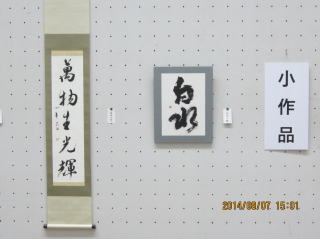 萬物生光輝
白水
小作品
2014/09/07 15:01